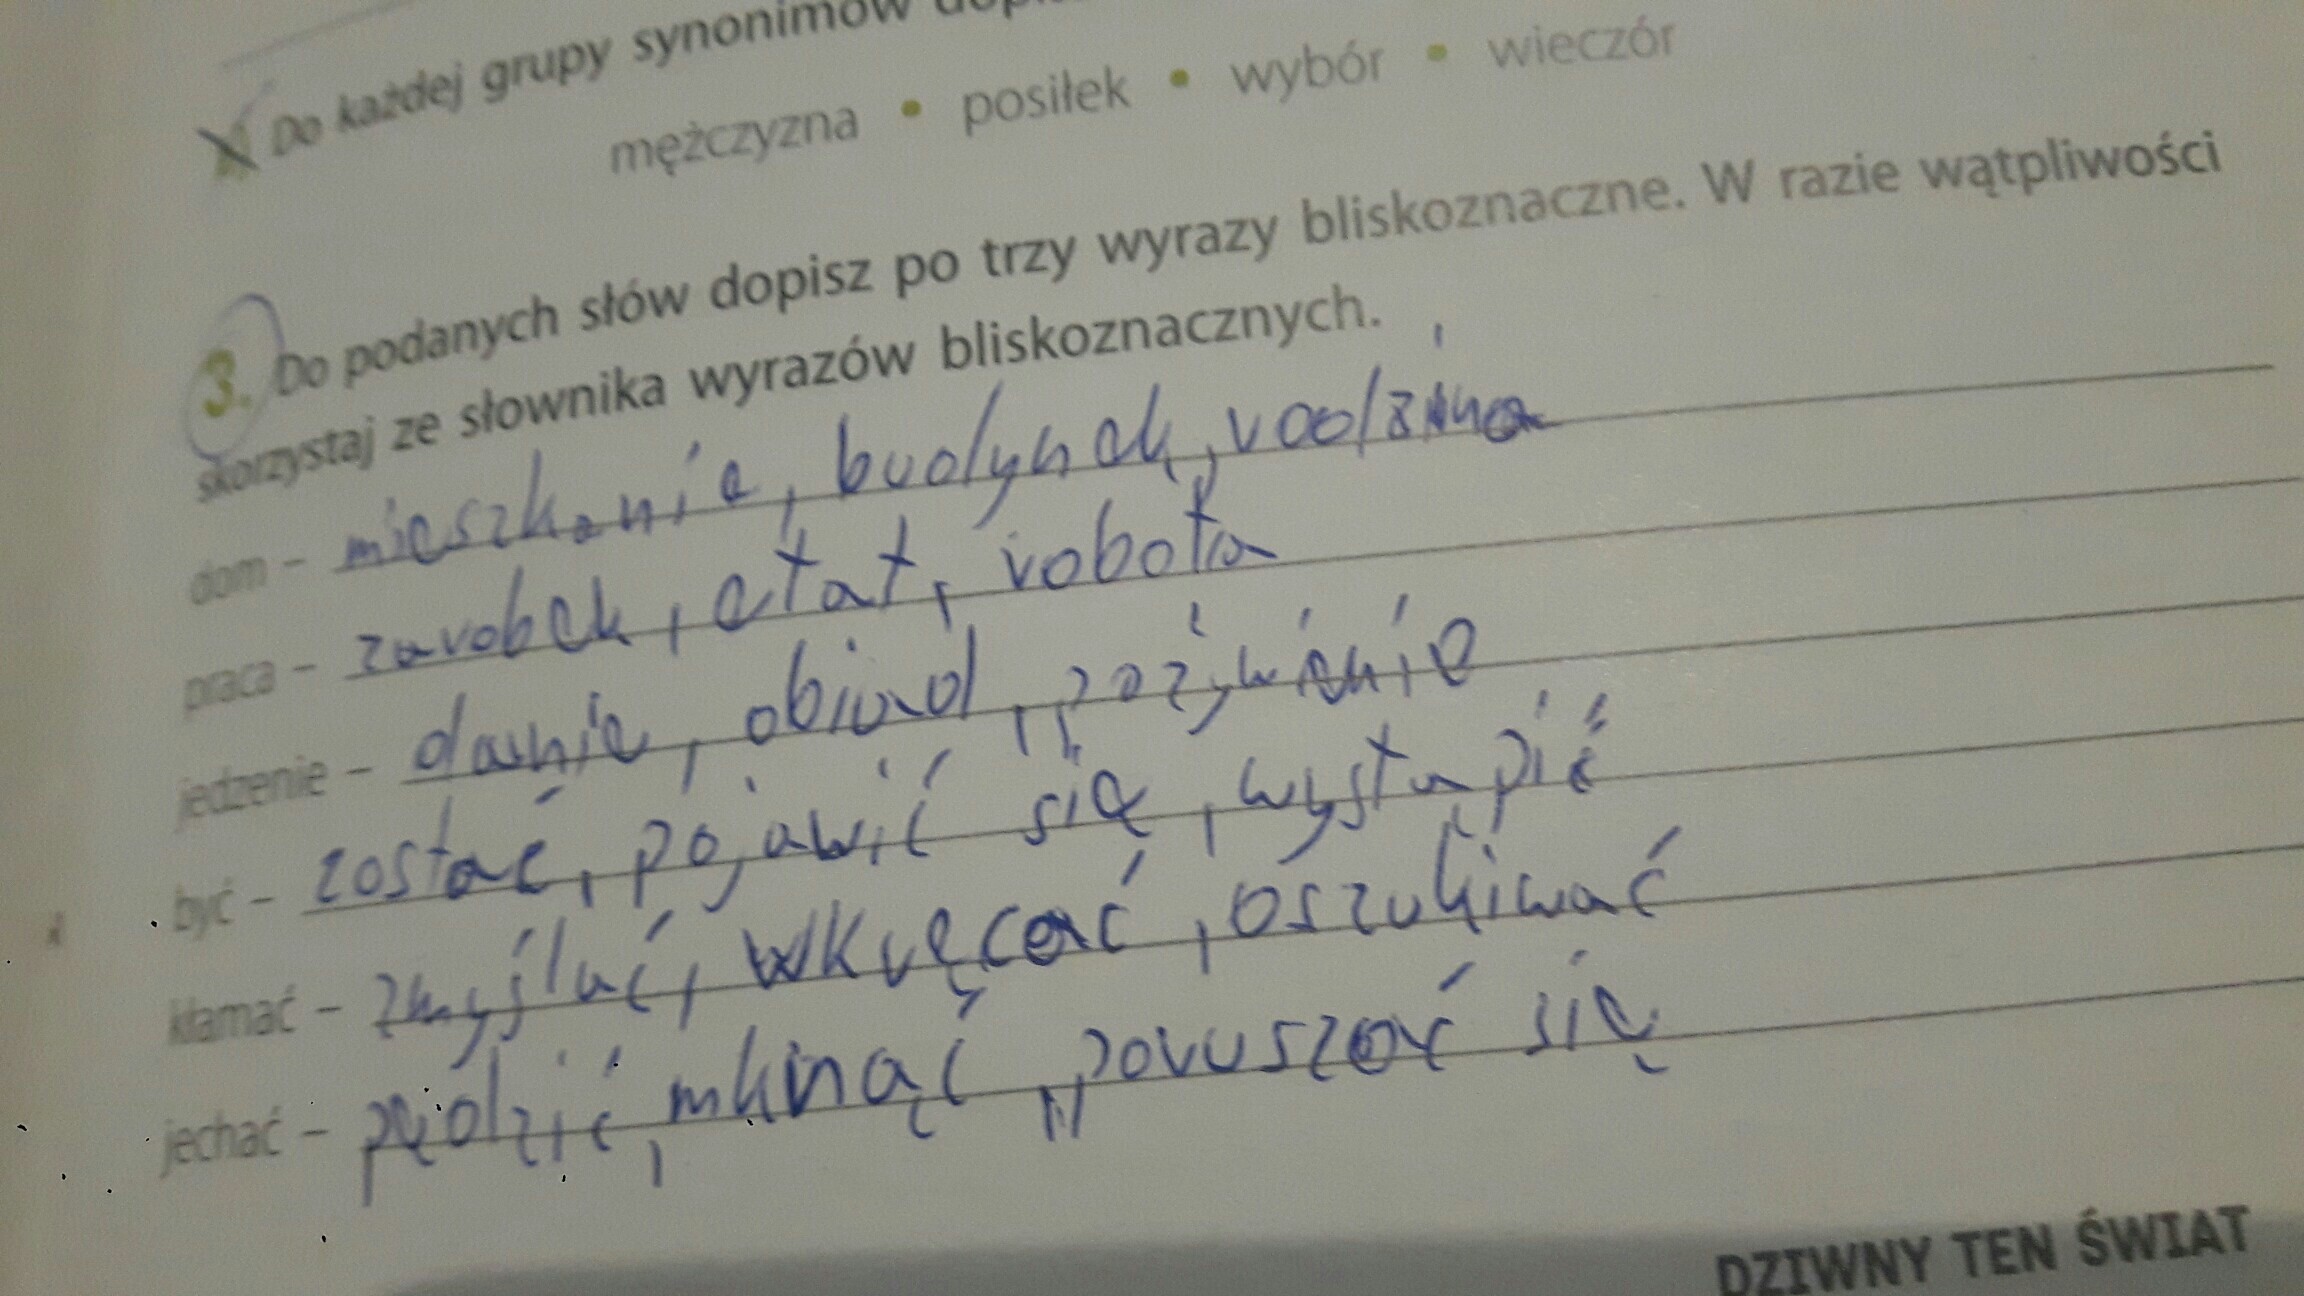 Do każdej grupy synonimów
mężczyzna • posiłek • wybór • wieczór
3. Do podanych słów dopisz po trzy wyrazy bliskoznaczne. W razie wątpliwości
skorzystaj ze słownika wyrazów bliskoznacznych.
dom – mieszkanie, budynek, rodzina
praca – zarobek, etat, robota
jedzenie – danie, obiad, pożywienie
być – zostać, pojawić się, wystąpić
kłamać – zmyślać, wkręcać, oszukiwać
jechać – pędzić, mknąć, poruszać się
DZIWNY TEN ŚWIAT